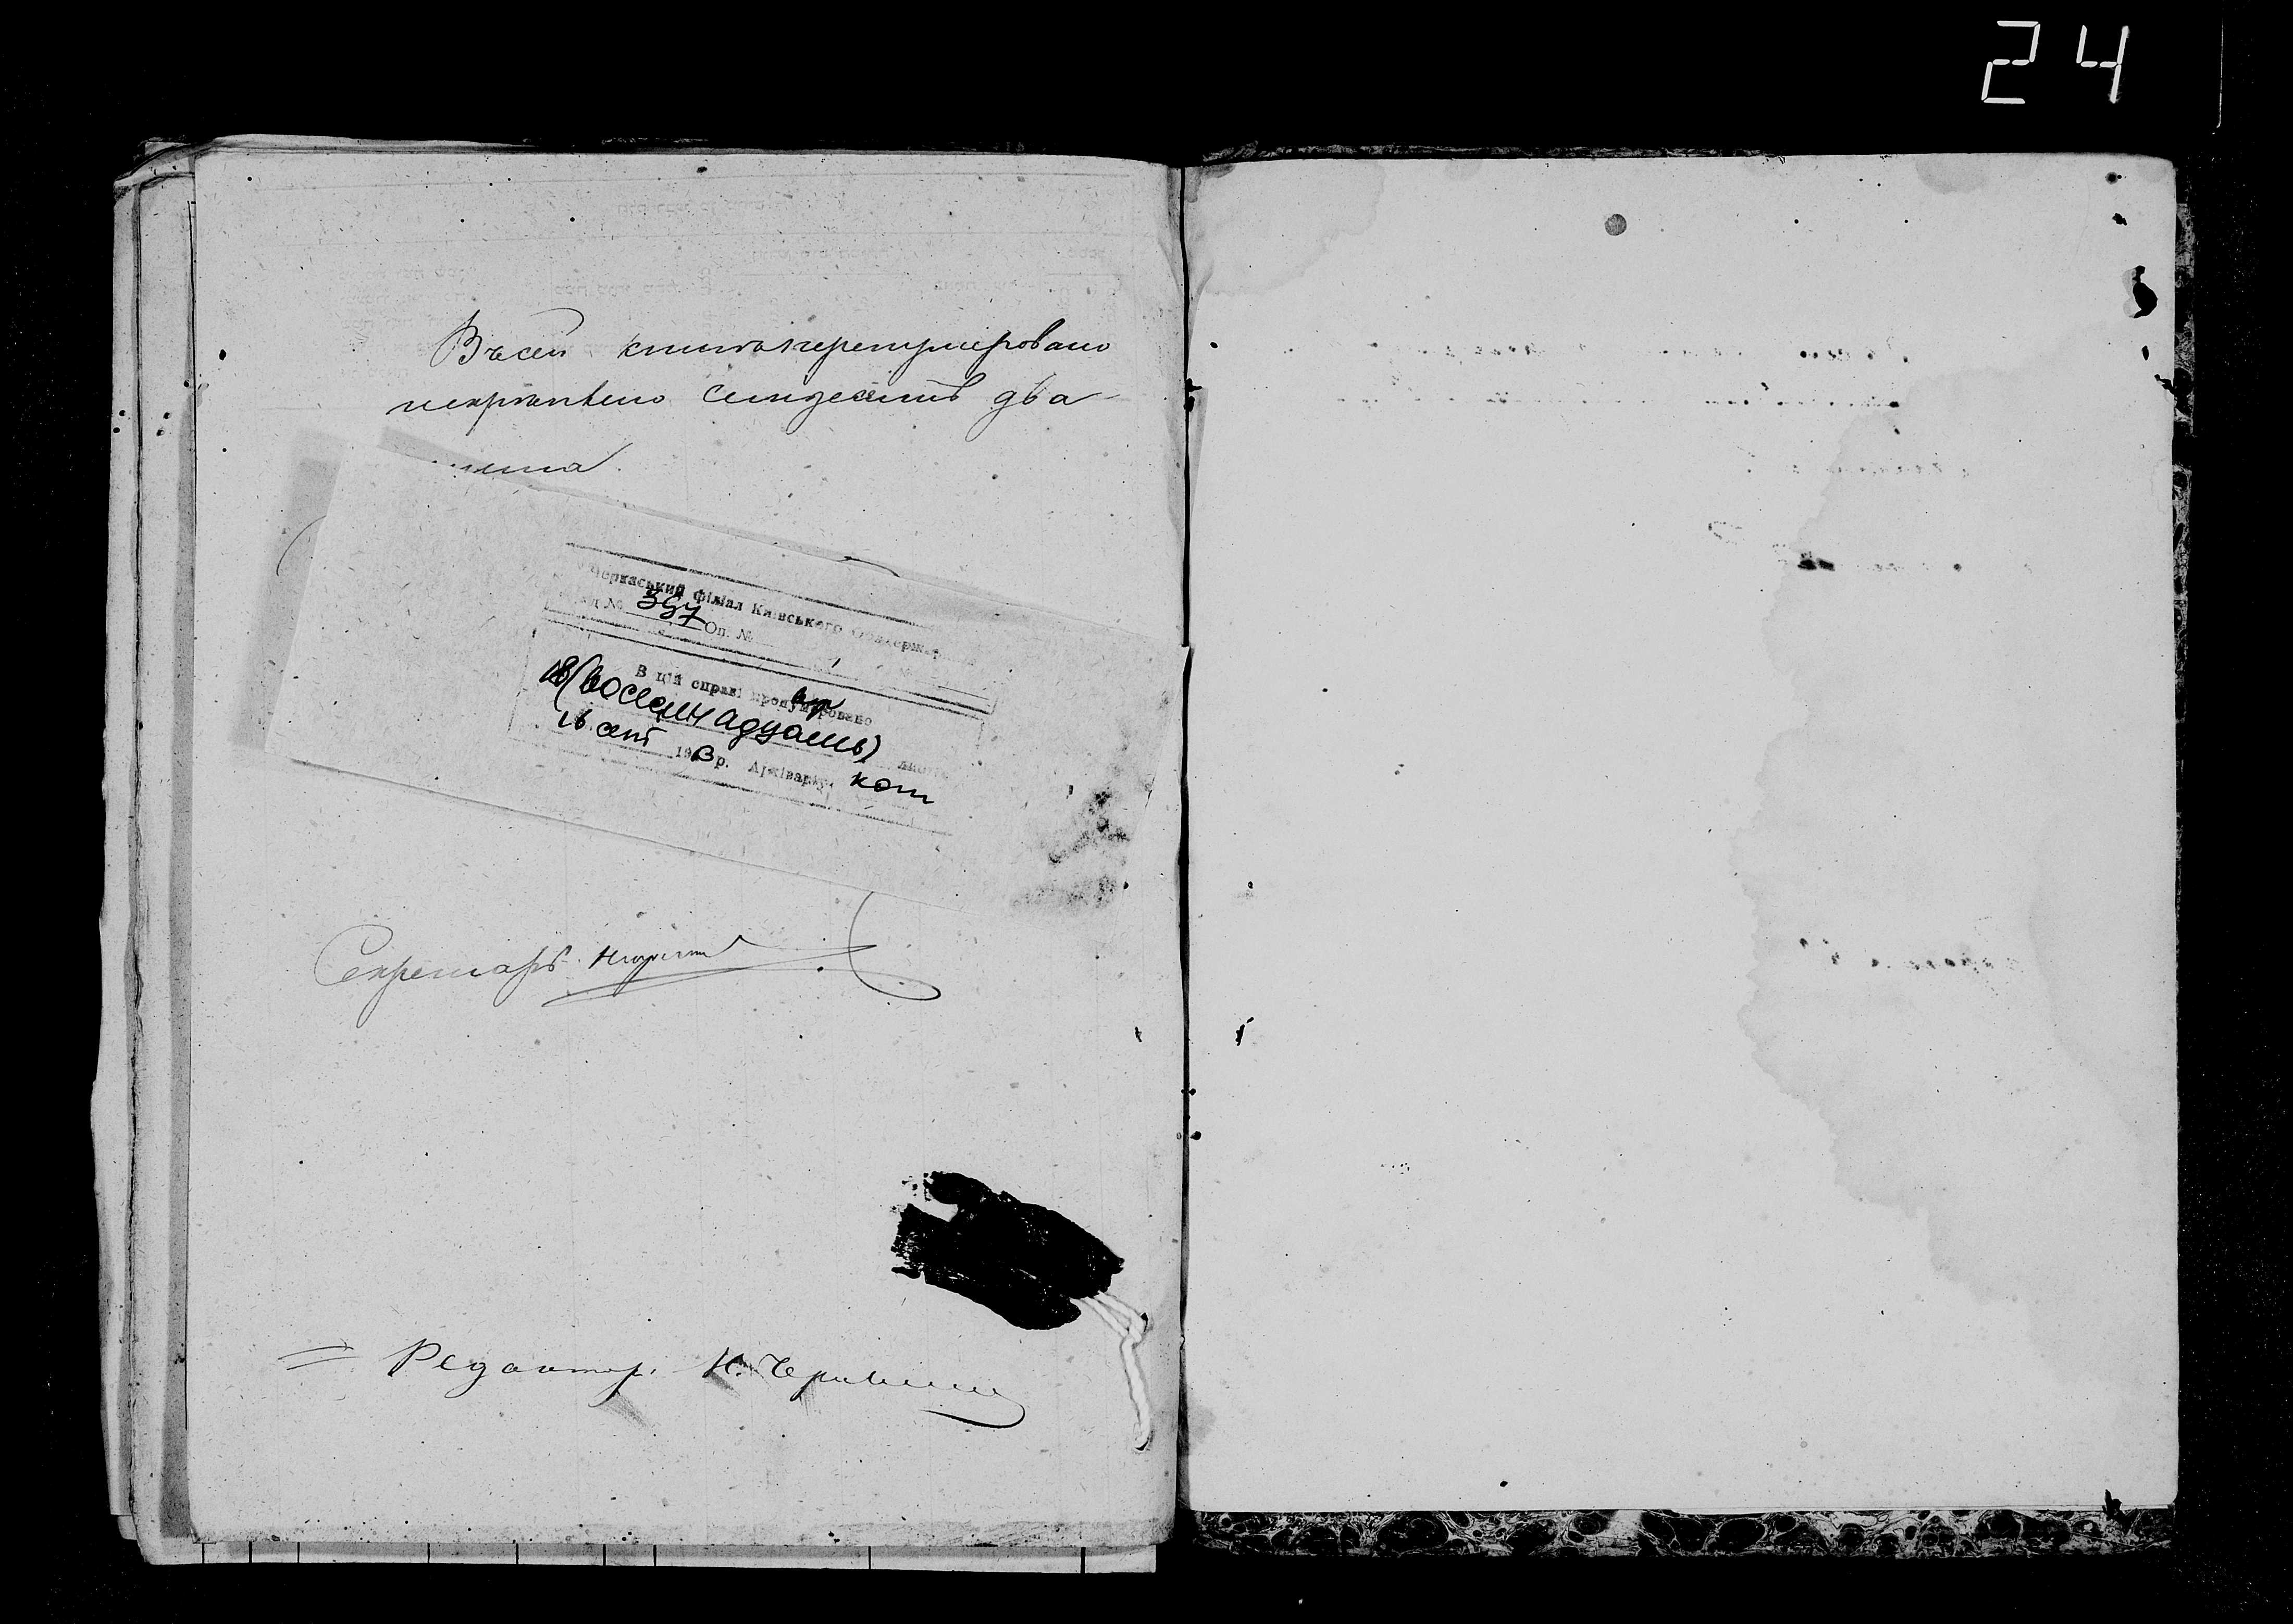 24
Въ сей книгѣ перенумеровано
и скрѣплено семдесятъ два
листа
Черкаський філіал Київського Облдержархіву
Фонд № 397 Оп. №
В цій справі пронумеровано
18 (восемнадцать) арк
листів
16 сент 1963 р. Архіваріус
Секретарь
Редакторъ Н.